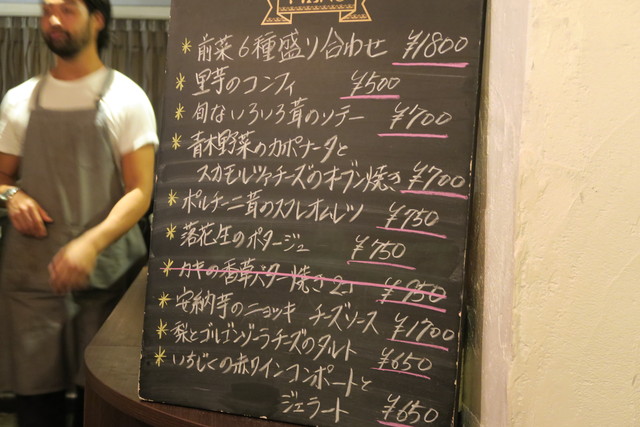 * 前菜6種盛り合わせ ¥1800
* 里芋のコンフィ ¥500
* 旬ないろいろ茸のソテー ¥700
* 青木野菜のカポナータと
スカモルツァチーズのオーブン焼き ¥700
* ポルチーニ茸のスフレオムレツ ¥750
* 落花生のポタージュ ¥750
* カキの香草バター焼き 2コ ¥950
* 安納芋のニョッキ チーズソース ¥1700
* 梨とゴルゴンゾーラチーズのタルト ¥650
* いちじくの赤ワインコンポートと
ジェラート ¥650